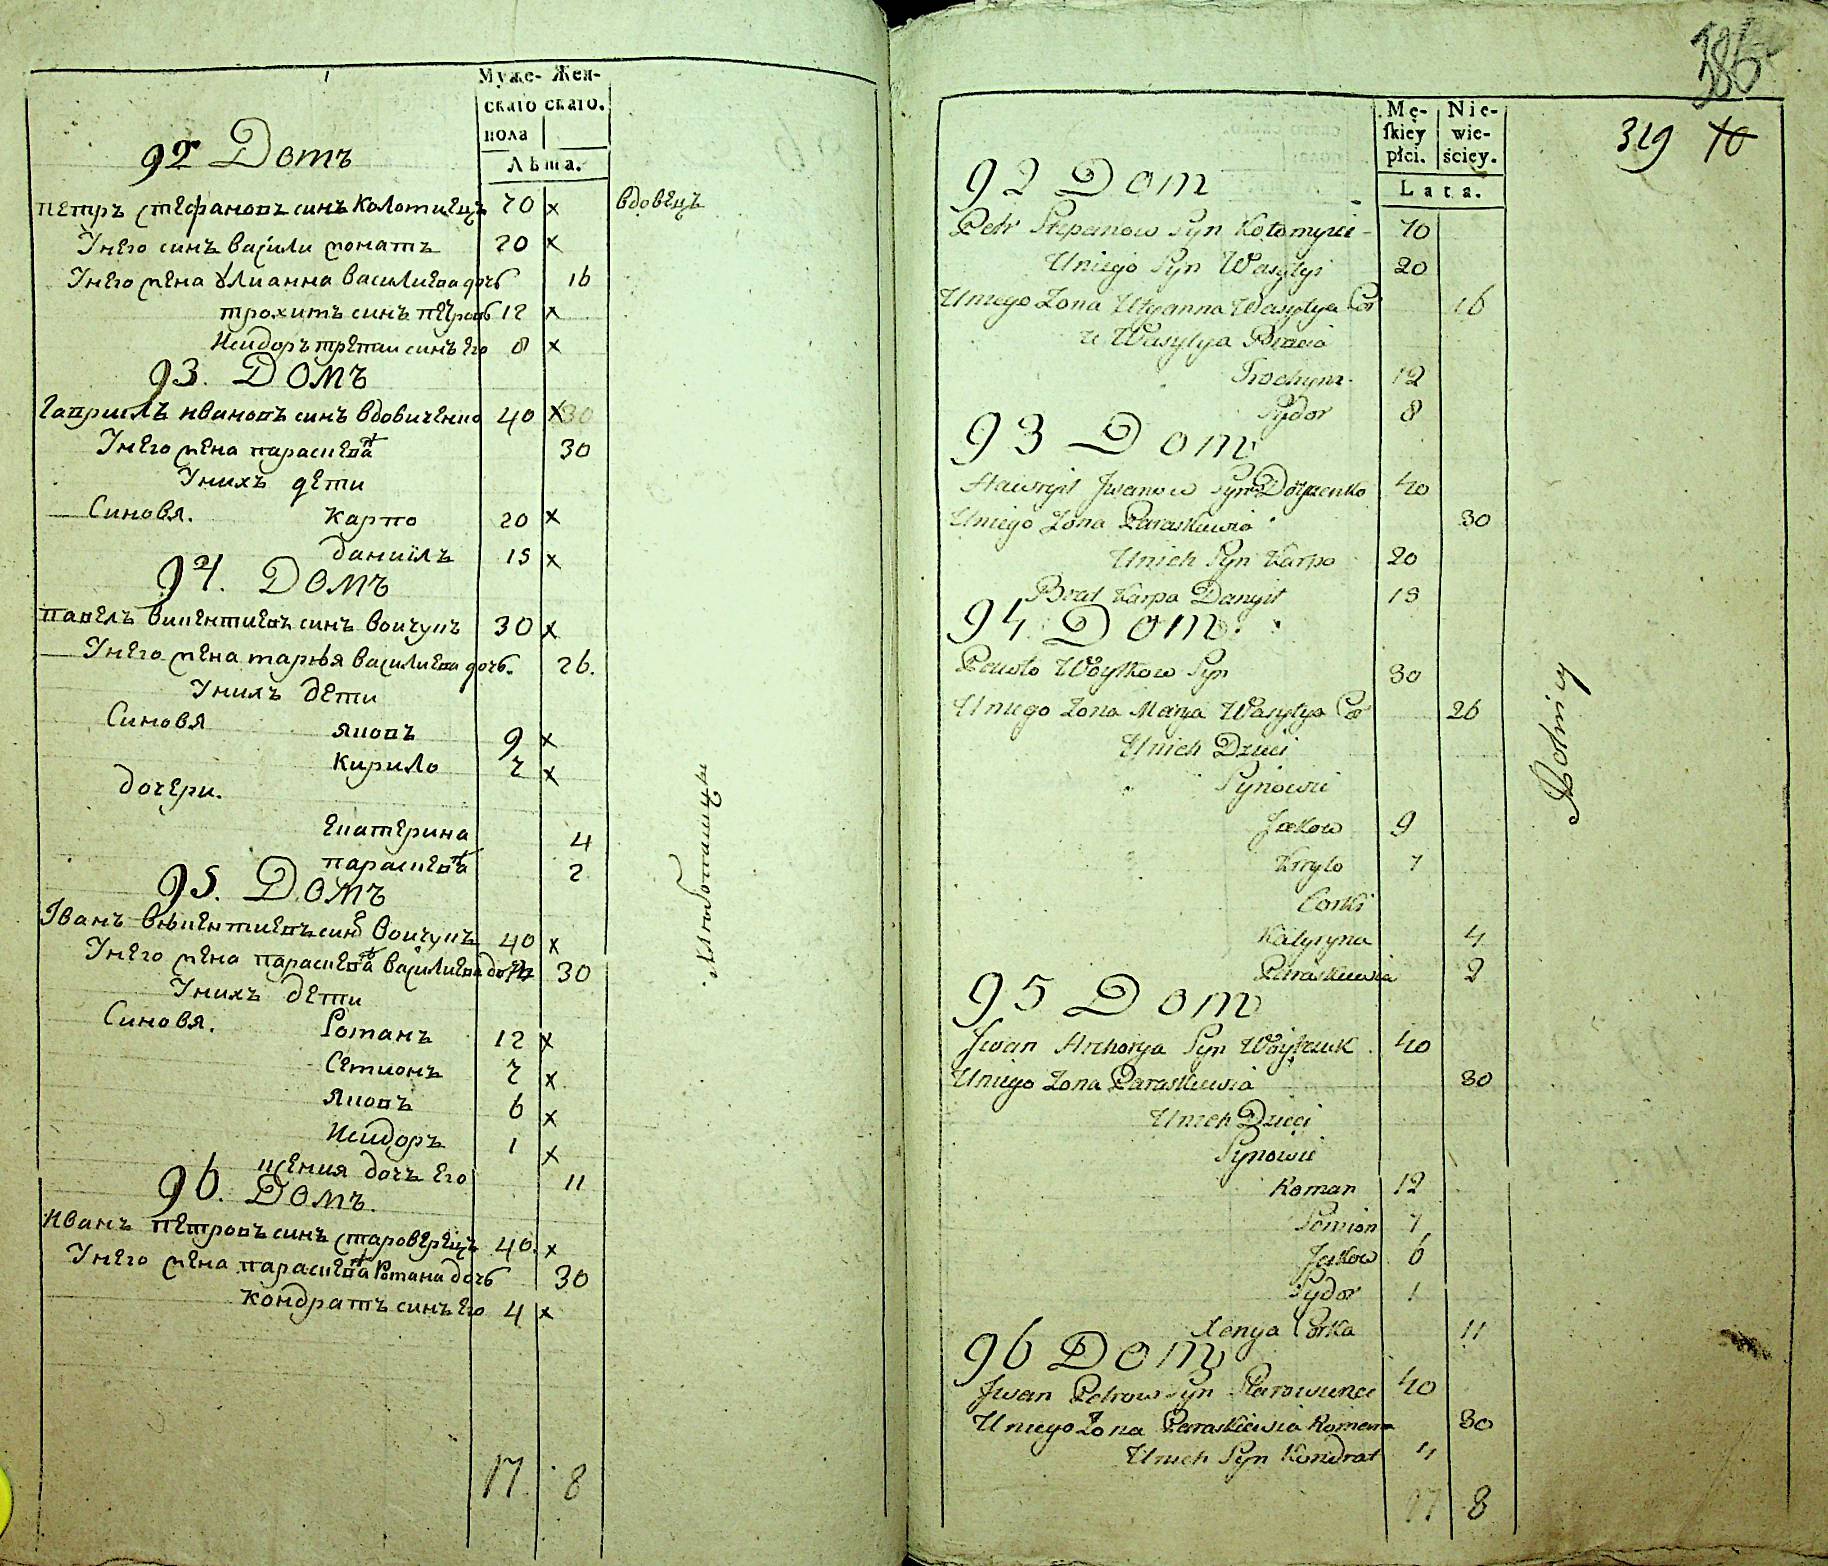 Муже- Жен-
скаго скаго.
пола
Лѣта.
92 Домъ
Петръ Стефановъ синъ Коломиецъ 70 x вдовецъ
Унего синъ Васили женатъ 20 x
Унего жена Улианна Василиева дочь 16
Трохимъ синъ Петровъ 12 x
Исидоръ третии синъ его 8 x
93. Домъ
Гавриилъ Ивановъ синъ Вдовиченко 40 x 30
Унего жена Параскева 30
Унихъ дети
Синовя. Карпо 20 x
Даниилъ 15 x
94. Домъ
Павелъ Викентиевъ синъ Воичукъ 30 x
Унего жена Маръя Василиева дочь. 26.
Унихъ дети
Синовя Яковъ 9 x
Кирило 7 x
дочери.
Екатерина 4
Параскева 2
95. Домъ
Іванъ Викентиевъ синъ Воичукъ 40 x
Унего жена Параскева Василиева дочь 30
Унихъ дети
Синовя. Романъ 12 x
Семионъ 7 x
Яковъ 6 x
Исидоръ 1 x
Ксения дочь его 11
96. Домъ.
Иванъ Петровъ синъ Староверецъ 40. x
Унего жена Параскева Романа дочь 30
Кондратъ синъ его 4 x
17. 8
Хлебопашцы
386
319 10
Mę- Nie-
skiey wie-
płci. ściey.
Lata.
92 Dom
Petr Stepanow Syn Kołomyiec 70
Uniego Syn Wasylyi 20
Uniego Zona Ulyanna Wasylya Cor 16
u Wasylya Bracia
Trochym 12
Sydor 8
93 Dom
Hawryił Jwanow Syn 40
Uniego Zona Paraskiewia 30
Unich Syn Karpo 20
Brat Karpa Danyił 15
94 Dom.
Pawło Woytkow Syn 30
Uniego Zona Marya Wasylya Cor 26
Unich Dzieci
Synowie
Jakow 9
Kiryło 7
Corki
Katyryna 4
Paraskiewia 2
95 Dom
Jwan Syn Woytczuk 40
Uniego Zona Paraskiewia 30
Unich Dzieci
Synowie
Roman 12
Semion 7
Jakow 6
Sydor 1
Xenya Corka 11
96 Dom
Jwan Petrow Syn 40
Uniego Zona Paraskiewia Romana 30
Unich Syn Kondrat 4
17 8
Rolnicy